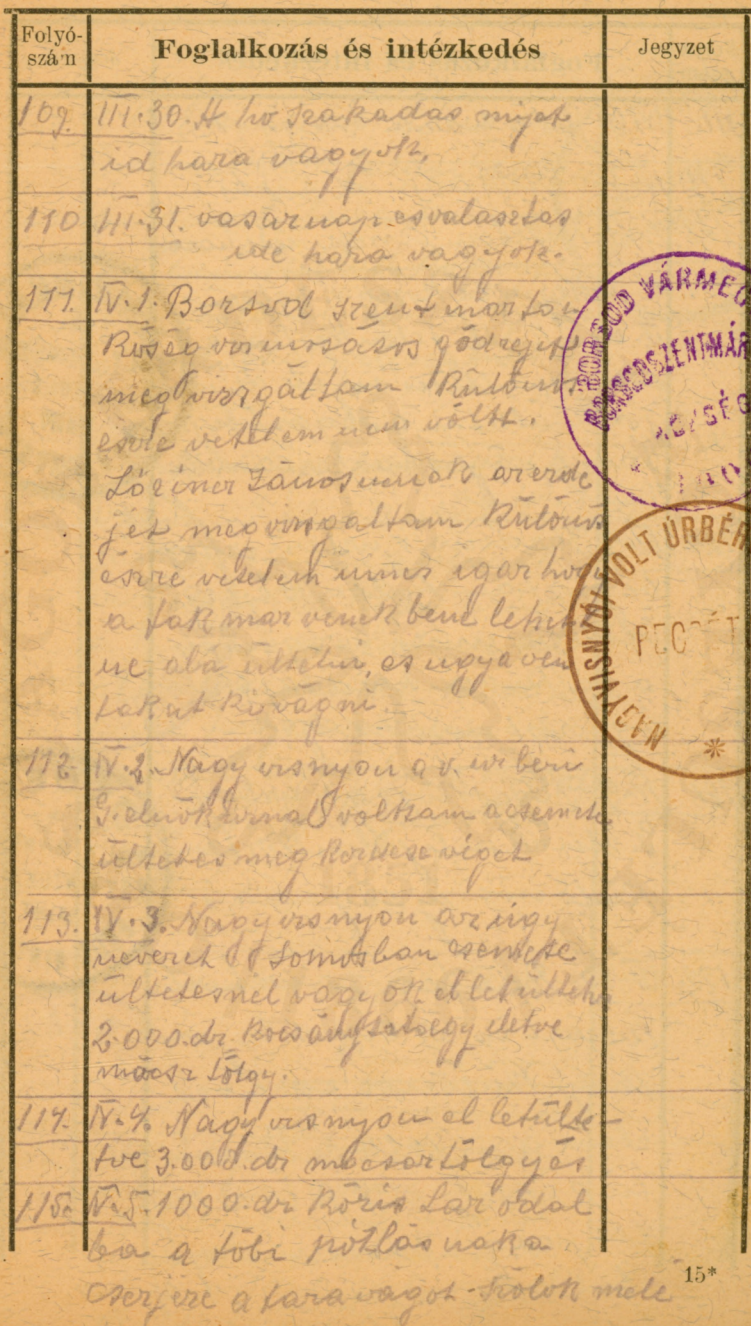 Folyó-szám Foglalkozás és intézkedés Jegyzet
109. III.30. A hó szakadas mijat
id haza vagyok.
110 III.31. vasarnap es valasztas
ide haza vagyok.
111. IV.1. Borsod szent marton
Köség vor gödrejit
meg vizsgáltam Külöuös
észre vetelem nem völtt.
János az erde
jét meg vizsgaltam Külöuös
észre vetelem igaz hogy
a fak mar venek bene lehet
ne alá ültetni, es ugya ven
fakat kivágni.
BORSOD VÁRME
BORSODSZENTMÁR
KÖZSÉG
NAGYVISNYÓI VOLT ÚRBÉR
PECSÉT
112. IV.2. Nagy visnyon a v. ur beri
G. elnök urnal voltam a csemete
ültetes meg kerdese véget
113. IV.3. Nagy visnyon az úgy
nevezet csemete
ültetesnel vagyok el let ültetve
2.000.dr egy iletve
tölgy.
114. IV.4. Nagy visnyon el let ülte-
tve 3.000.dr mocsar tölgy és
115. IV.5. 1000.dr Köris Laz odal
ba a többi pótlásnak a
cserjere a fara vagot melé
15*